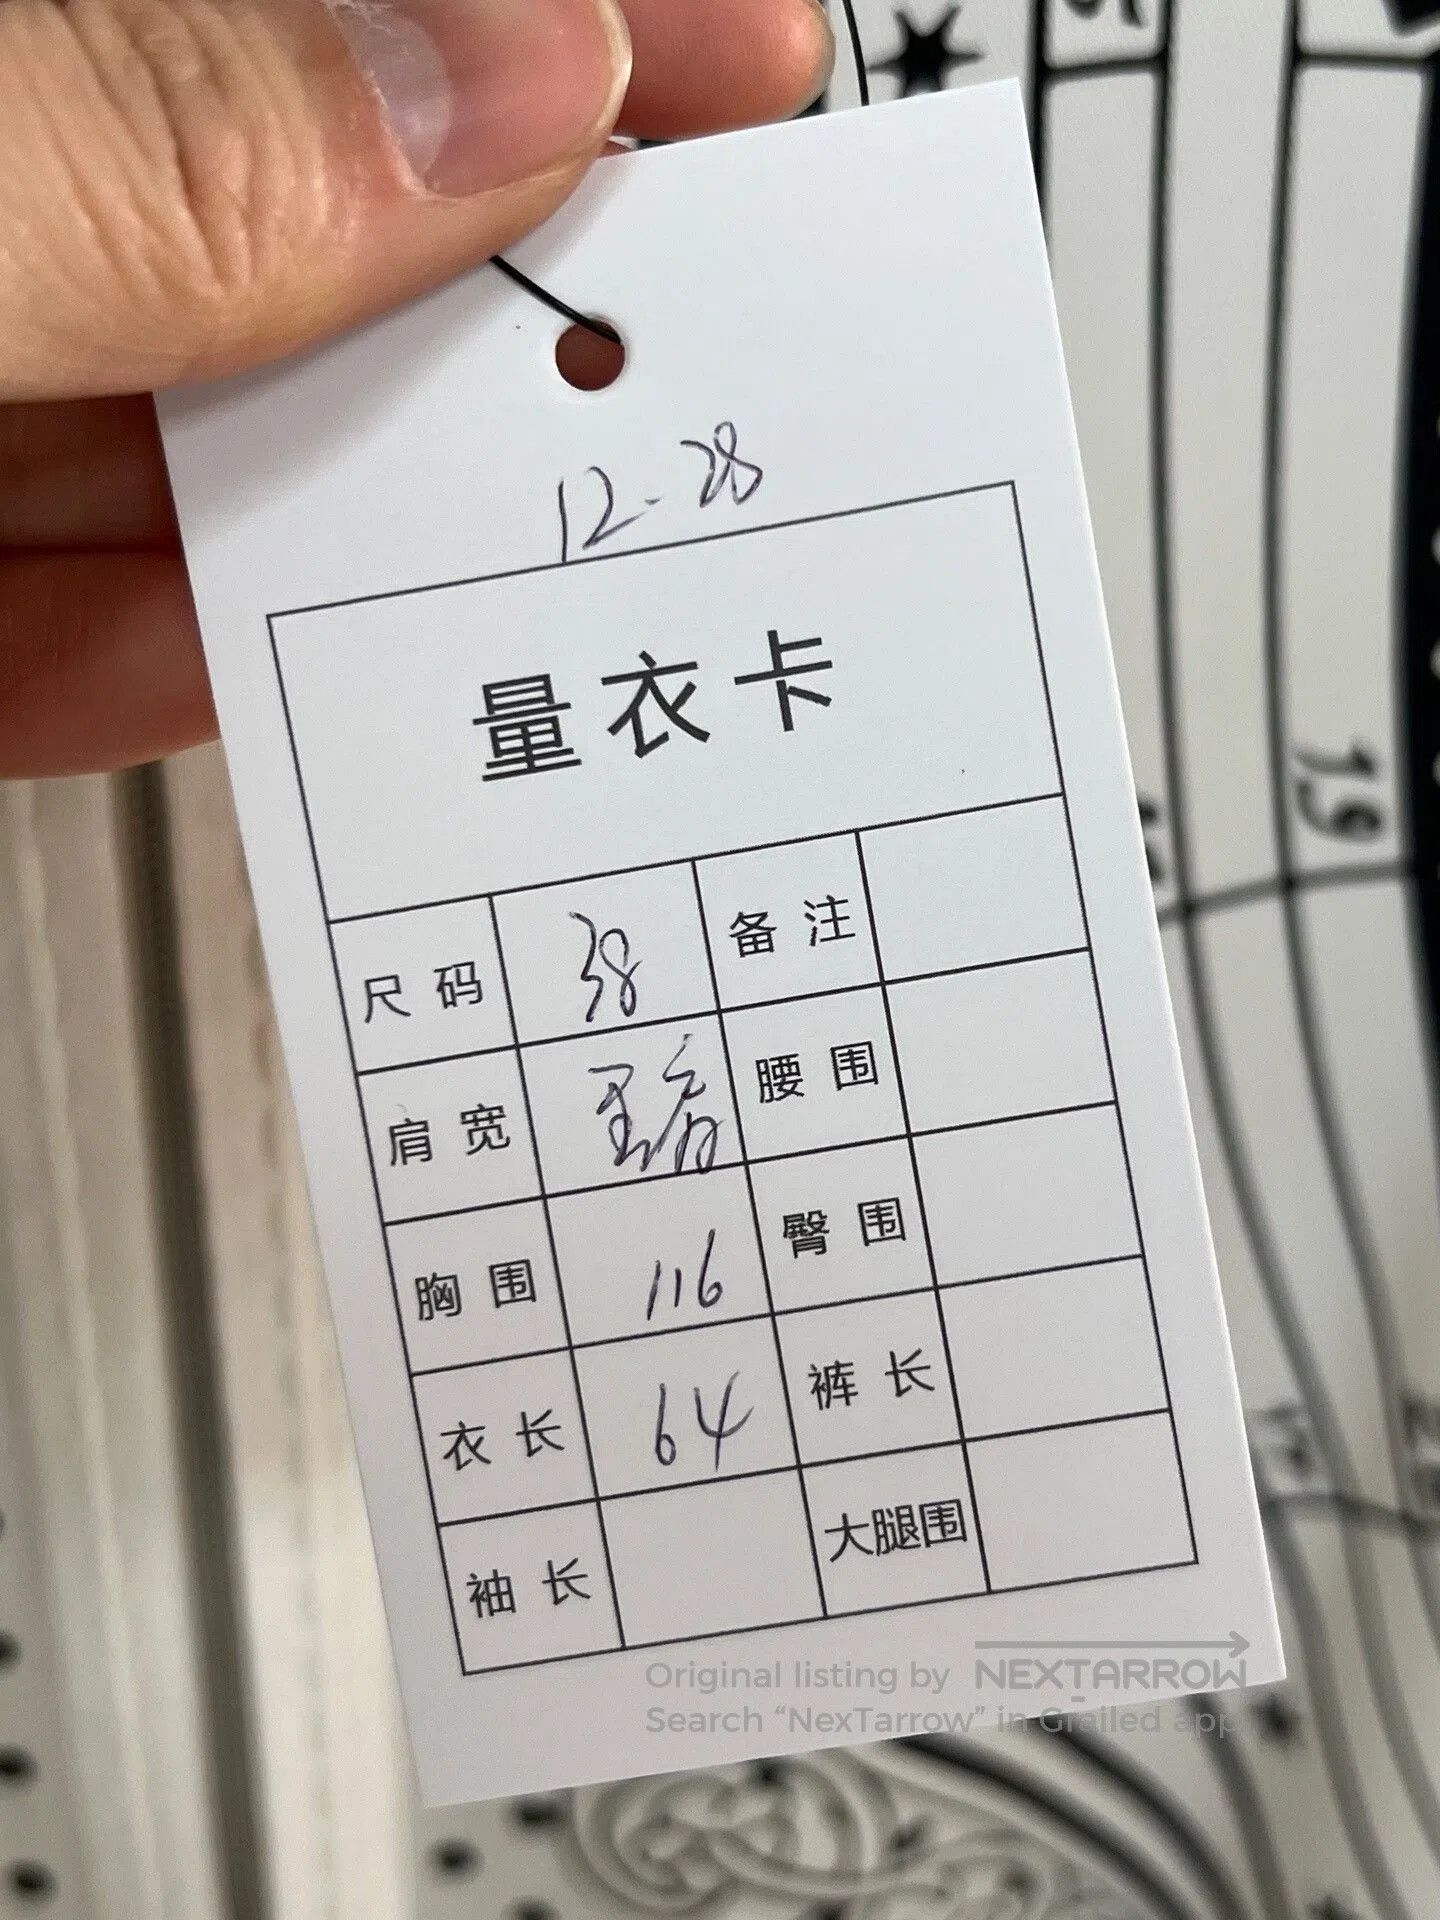 12-28
量衣卡
尺码 38 备注
肩宽 腰围
胸围 116 臀围
衣长 64 裤长
袖长 大腿围
19
Original listing by NEXTARROW
Search “NexTarrow” in Grailed app